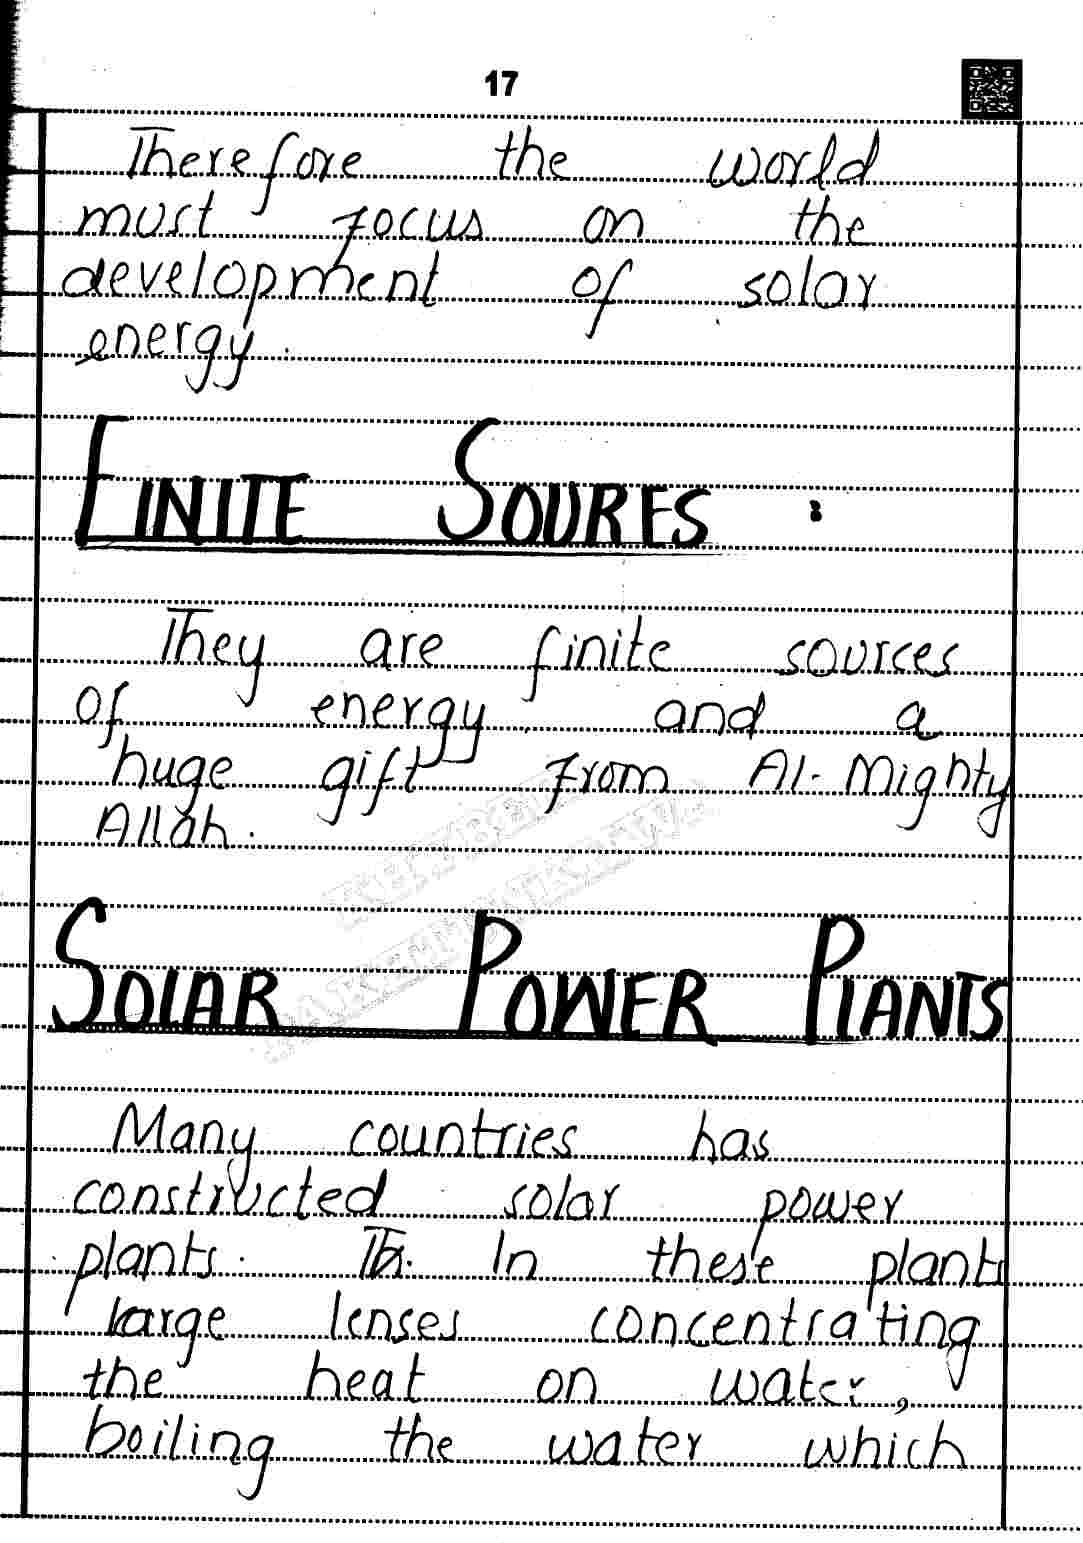 17
Therefore the world
must focus on the
development of solar
energy.
FINITE SOURES :
They are finite sources
of energy and a
huge gift from Al-Mighty
Allah.
SOLAR POWER PLANTS
Many countries has
constructed solar power
plants. Th. In these plants
large lenses concentrating
the heat on water,
boiling the water which